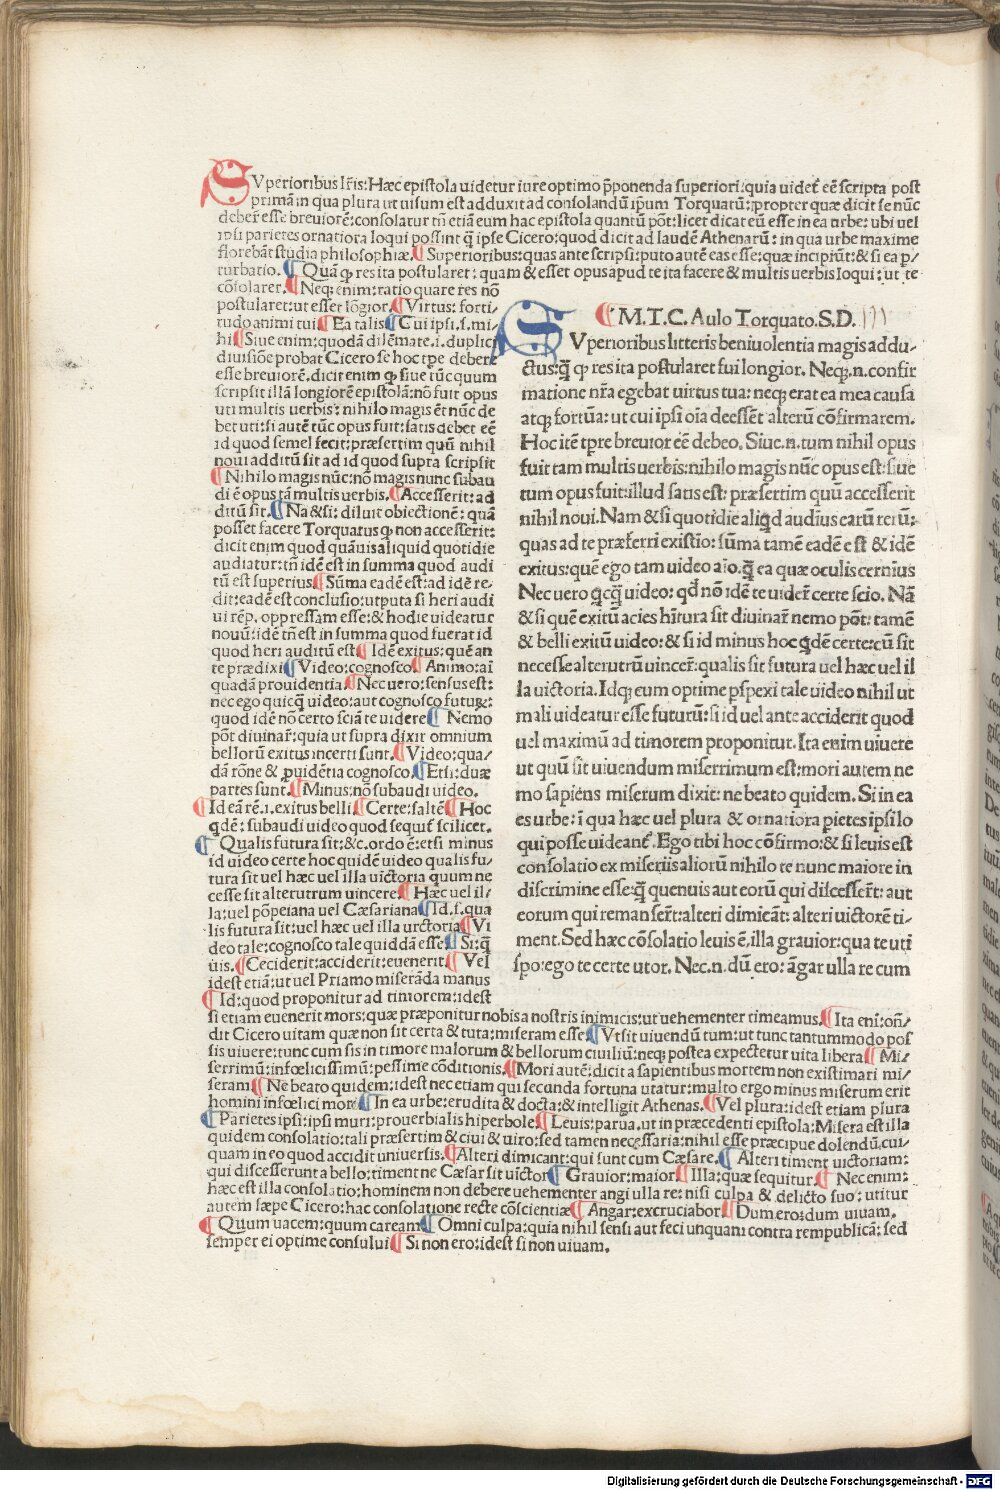 SVperioribus lr̃is: Hæc epistola uidetur iure optimo p̃ponenda superiori: quia uidet̃ eẽ scripta post
primã in qua plura ut uisum est adduxit ad consolandũ ip̃um Torquatũ: propter quæ dicit se nũc
deber̃ esse breuiorẽ: consolatur tñ etiã eum hac epistola quantũ põt: licet dicat eũ esse in ea urbe: ubi uel
ipsi parietes ornatiora loqui possint q̃ ipse Cicero: quod dicit ad laudẽ Athenarũ: in qua urbe maxime
florebãt studia philosophiæ. ¶ Superioribus: quas ante scripsi: puto autẽ eas esse: quæ incipiũt: & si ea p/
turbatio. ¶ Quã ꝙ res ita postularet: quam & esset opus apud te ita facere & multis uerbis loqui: ut te
cõsolarer. ¶ Neqꝫ enim: ratio quare res nõ
postularet: ut esset lõgior. ¶ Virtus: forti/
tudo animi tui ¶ Ea talis ¶ Cui ipsi .s. mi/
hi ¶ Siue enim: quodã dilẽmate .i. duplici
diuisiõe probat Cicero se hoc tp̃e debere
esse breuiorẽ. dicit enim ꝙ siue tũc quum
scripsit illã longiorẽ epistolã: nõ fuit opus
uti multis uerbis: nihilo magis ẽt nũc de
bet uti: si autẽ tũc opus fuit: satis debet eẽ
id quod semel fecit: præsertim quũ nihil
noui additũ sit ad id quod supra scripsit
¶ Nihilo magis nũc: nõ magis nunc subau
di ẽ opus tã multis uerbis. ¶ Accesserit: ad
ditũ sit. ¶ Nã & si: diluit obiectionẽ: quã
posset facere Torquatus ꝙ non accesserit:
dicit enim quod quãuis aliquid quotidie
audiatur: tñ idẽ est in summa quod audi
tũ est superius ¶ Sũma eadẽ est: ad idẽ re/
dit: eadẽ est conclusio: utputa si heri audi
ui rẽp. oppressam esse: & hodie uideatur
nouũ: idẽ tñ est in summa quod fuerat id
quod heri auditũ est ¶ Idẽ exitus: quẽ an
te prædixi ¶ Video: cognosco. ¶ Animo: aĩ
quadã prouidentia. ¶ Nec uero: sensus est:
nec ego quicq̃ video: aut cognosco futurꝫ:
quod idẽ nõ certo sciã te uidere ¶ Nemo
põt diuinar̃: quia ut supra dixit omnium
bellorũ exitus incerti sunt. ¶ Video: qua/
dã rõne & ꝓuidẽtia cognosco. ¶ Etsi: duæ
partes sunt. ¶ Minus: nõ subaudi uideo.
¶ Id eã rẽ .i. exitus belli ¶ Certe: saltẽ ¶ Hoc
qdẽ: subaudi uideo quod sequit̃ scilicet.
¶ Qualis futura sit: &c. ordo ẽ: etsi minus
id uideo certe hoc quidẽ uideo qualis fu/
tura sit uel hæc uel illa uictoria quum ne
cesse sit alterutrum uincere ¶ Hæc uel il/
la: uel põpeiana uel Cæsariana ¶ Id .s. qua
lis futura sit: uel hæc uel illa uictoria ¶ Vi
deo tale: cognosco tale quiddã esse. ¶ Si: q̃
uis. ¶ Ceciderit: acciderit: euenerit ¶ Vel
id est etiã: ut uel Priamo miserãda manus
¶ Id: quod proponitur ad timorem: id est
¶ M.T.C. Aulo Torquato. S.D.
SVperioribus litteris beniuolentia magis addu/
ctus: q̃ ꝙ res ita postularet fui longior. Neqꝫ .n. confir
matione nr̃a egebat uirtus tua: neqꝫ erat ea mea causa
atqꝫ fortũa: ut cui ipsi oĩa deessẽt alterũ cõfirmarem.
Hoc itẽ tp̃re breuior eẽ debeo. Siue .n. tum nihil opus
fuit tam multis uerbis: nihilo magis nũc opus est: siue
tum opus fuit: illud satis est: præsertim quũ accesserit
nihil noui. Nam & si quotidie aliqd audius earũ rerũ:
quas ad te præferri existio: sũma tamẽ eadẽ est & idẽ
exitus: quẽ ego tam uideo aĩo. q̃ ea quæ oculis cernius
Nec uero q̃cq̃ uideo: qd̃ nõ idẽ te uider̃ certe scio. Nã
& si quẽ exitũ acies hĩtura sit diuinar̃ nemo põt: tamẽ
& belli exitũ uideo: & si id minus hoc qdẽ certe: cũ sit
necesse alterutrũ uincer̃: qualis sit futura uel hæc uel il
la uictoria. Idqꝫ eum optime ꝑspexi tale uideo nihil ut
mali uideatur esse futurũ: si id uel ante acciderit quod
uel maximũ ad timorem proponitur. Ita enim uiuere
ut quũ sit uiuendum miserrimum est: mori autem ne
mo sapiens miserum dixit: ne beato quidem. Si in ea
es urbe: ĩ qua hæc uel plura & ornatiora pietes ipsi lo
qui posse uideant̃. Ego tibi hoc cõfirmo: & si leuis est
consolatio ex miseriis aliorũ nihilo te nunc maiore in
discrimine esse: q̃ quenuis aut eorũ qui discesser̃t: aut
eorum qui remanser̃t: alteri dimicãt: alteri uictorẽ ti/
ment. Sed hæc cõsolatio leuis ẽ, illa grauior: qua te uti
spo: ego te certe utor. Nec .n. dũ ero: ãgar ulla re cum
si etiam euenerit mors: quæ præponitur nobis a nostris inimicis: ut uehementer timeamus. ¶ Ita eni: oñ/
dit Cicero uitam quæ non sit certa & tuta: miseram esse ¶ Vt sit uiuendũ tum: ut tunc tantummodo pos
sis uiuere: tunc cum sis in timore malorum & bellorum ciuiliũ: neqꝫ postea expectetur uita libera ¶ Mi/
serrimũ: infœlicissimũ: pessime cõditionis. ¶ Mori autẽ: dicit a sapientibus mortem non existimari mi/
seram ¶ Ne beato quidem: id est nec etiam qui secunda fortuna utatur: multo ergo minus miserum erit
homini infœlici mori ¶ In ea urbe: erudita & docta: & intelligit Athenas. ¶ Vel plura: id est etiam plura
¶ Parietes ipsi: ipsi muri: prouerbialis hiperbole ¶ Leuis: parua, ut in præcedenti epistola: Misera est illa
quidem consolatio: tali præsertim & ciui & uiro: sed tamen necessaria: nihil esse præcipue dolendũ cui/
quam in eo quod accidit uniuersis. ¶ Alteri dimicant: qui sunt cum Cæsare. ¶ Alteri timent uictoriam:
qui discesserunt a bello: timent ne Cæsar sit uictor ¶ Grauior: maior ¶ Illa: quæ sequitur. ¶ Nec enim:
hæc est illa consolatio: hominem non debere uehementer angi ulla re: nisi culpa & delicto suo: utitur
autem sæpe Cicero: hac consolatione recte cõscientiæ ¶ Angar: excruciabor ¶ Dum. ero: dum uiuam.
¶ Quum uacem: quum caream ¶ Omni culpa: quia nihil sensi aut feci unquam contra rempublicã: sed
semper ei optime consului ¶ Si non ero: id est si non uiuam.
Digitalisierung gefördert durch die Deutsche Forschungsgemeinschaft - DFG